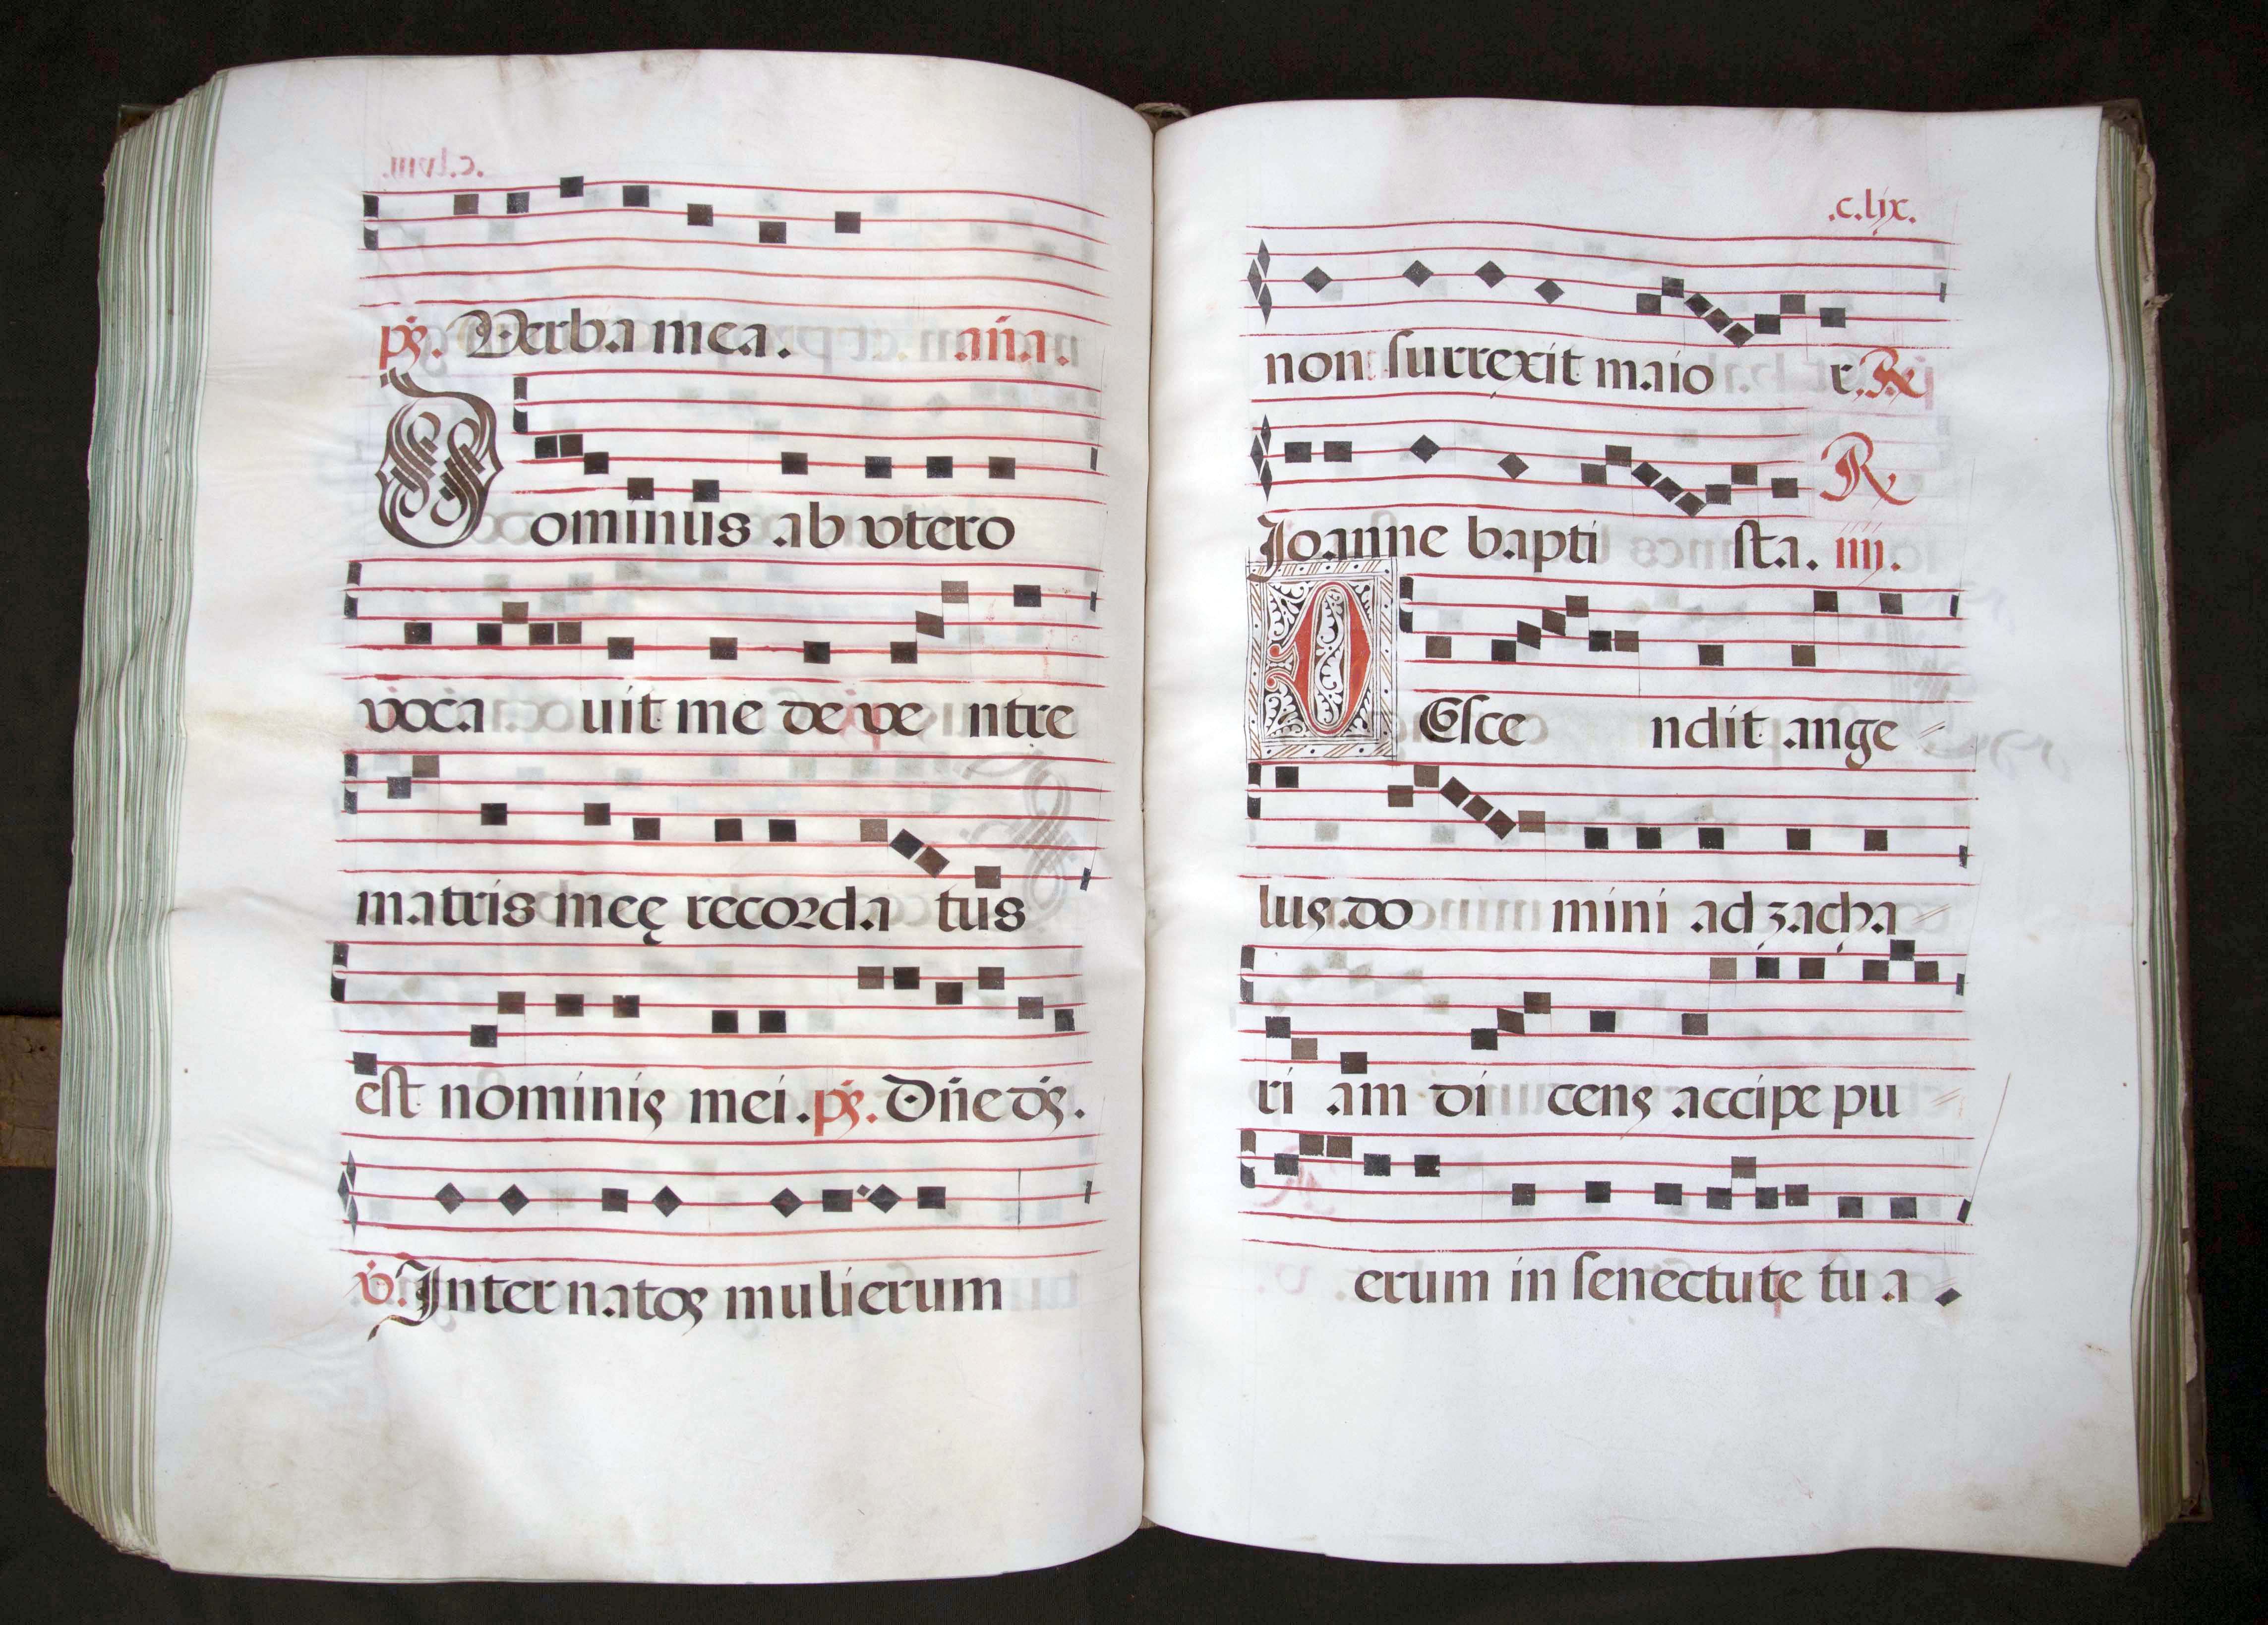 ps. Verba mea. aña.
Dominus ab vtero
voca uit me de ve ntre
matris meę recorda tus
est nominis mei. ps. Dñe ds.
℣. Inter natos mulierum
.c.lix.
non surrexit maio r. ℟
Joanne bapti sta. ℟ iiii.
DEsce ndit ange
lus do mini ad zacha
ri am di cens accipe pu
erum in senectute tu a